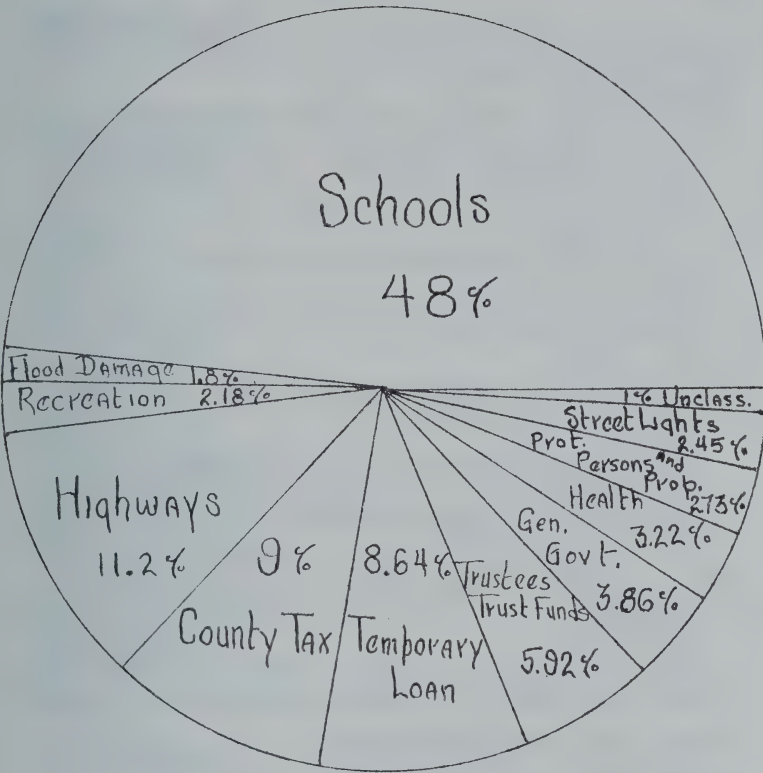 Schools
48%
Flood Damage 1.8%
Recreation 2.18%
Highways
11.2%
9%
County Tax
8.64%
Temporary
Loan
Trustees
Trust Funds
5.92%
Gen.
Govt.
3.86%
Health
3.22%
Prot.
Persons and
Prop.
2.73%
Street Lights
2.45%
1% Unclass.